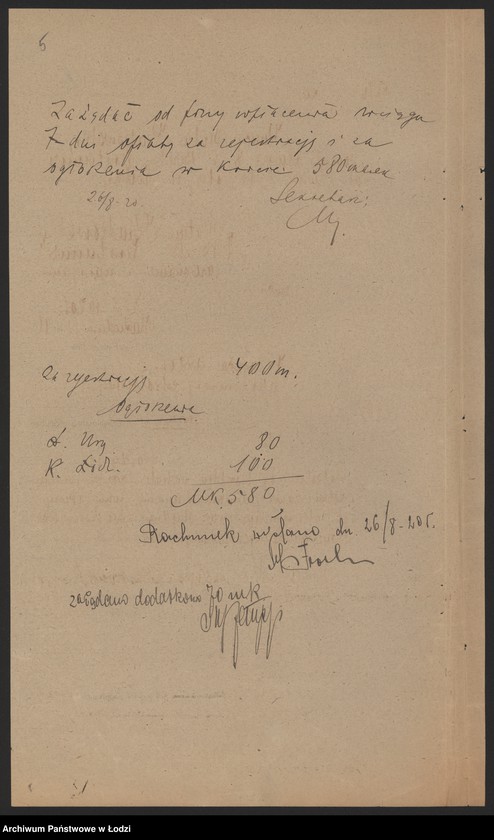 5
Zażądać od firmy wpłacenia w ciągu
7 dni opłaty za rejestrację i za
ogłoszenia w kwocie 580 marek
26/8-20. Sekretarz:
za rejestrację 400 m.
Ogłoszenia
D. Urz. 80
K. Łódz. 100
MK. 580
Rachunek wysłano dn. 26/8-20 r.
zażądano dodatkowo 70 mk
Archiwum Państwowe w Łodzi